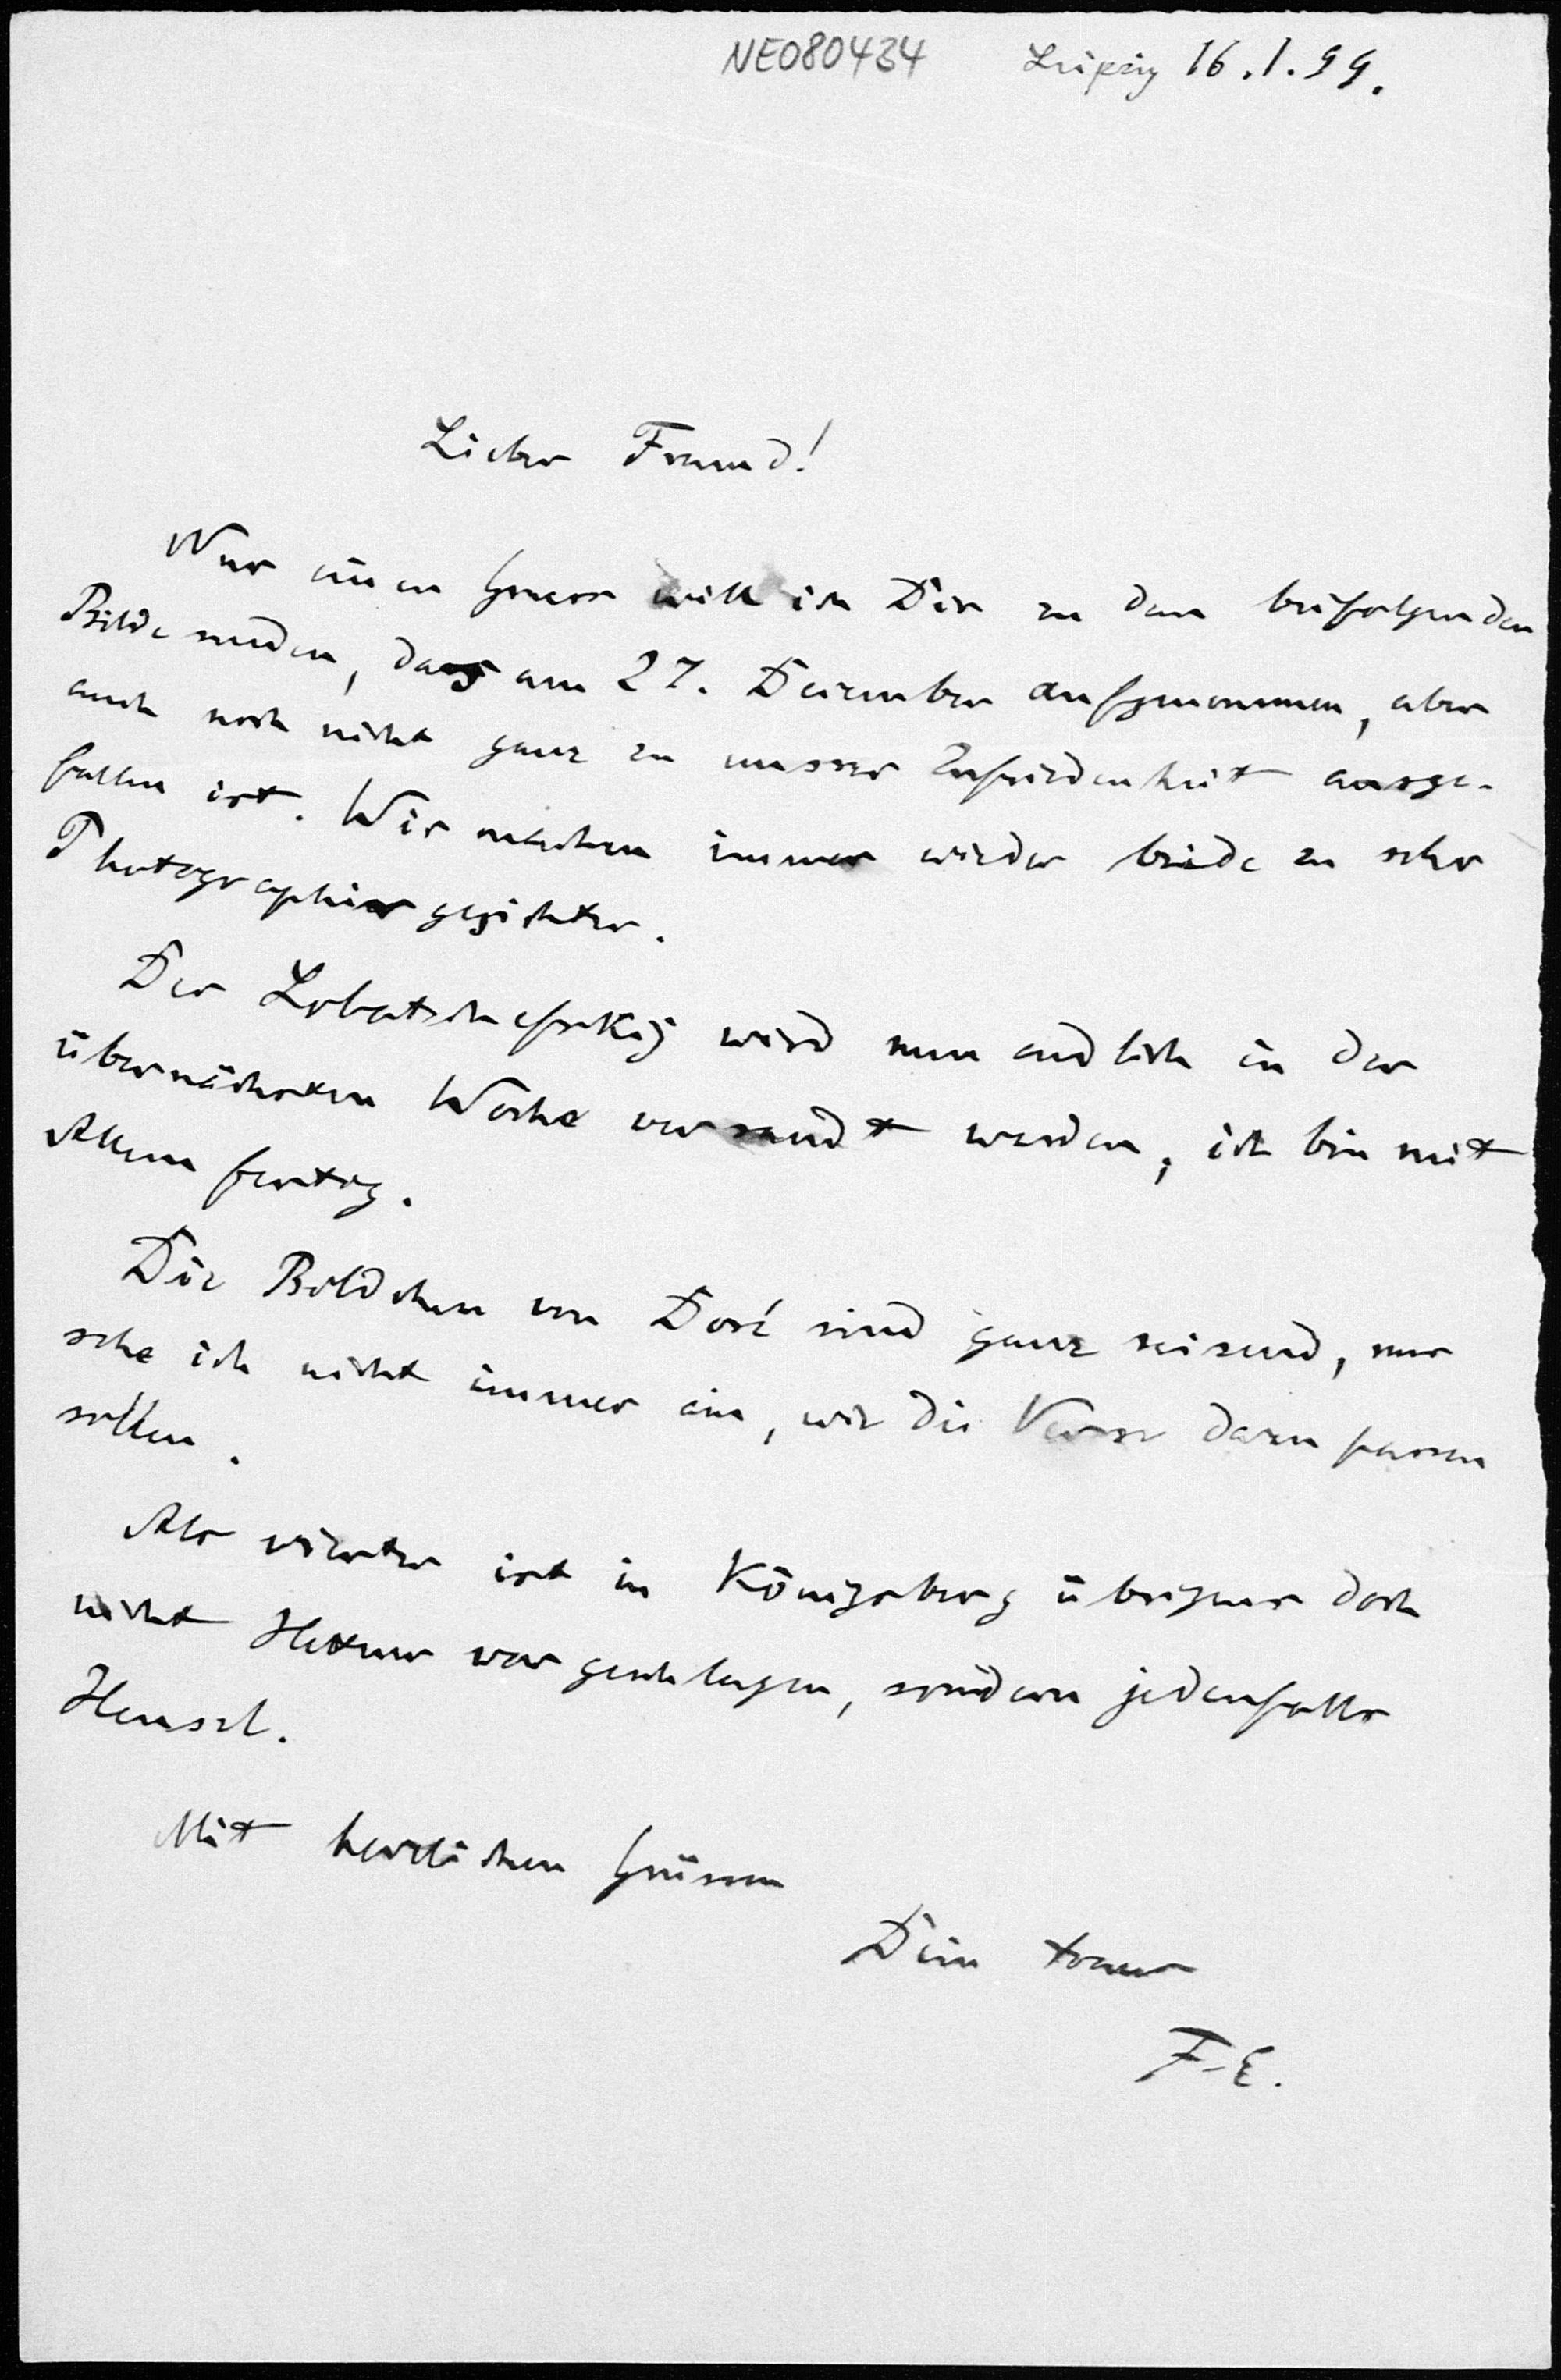 NE080434 Leipzig 16.1.99.
Lieber Freund!
Nur einen Gruss will ich Dir zu dem beifolgenden
Bilde senden, das am 27. Dezember aufgenommen, aber
auch noch nicht ganz zu unsrer Zufriedenheit ausge-
fallen ist. Wir machen immer wieder beide zu sehr
Photographiergesichter.
Der Lobatschefskij wird nun endlich in der
übernächsten Woche versandt werden, ich bin mit
Allem fertig.
Die Bildchen von Doré sind ganz reizend, nur
sehe ich nicht immer ein, wie die Verse dazu passen
sollen.
Als vierter ist in Königsberg übrigens doch
nicht Hettner vorgeschlagen, sondern jedenfalls
Hensel.
Mit herzlichen Grüssen
Dein treuer
F. E.